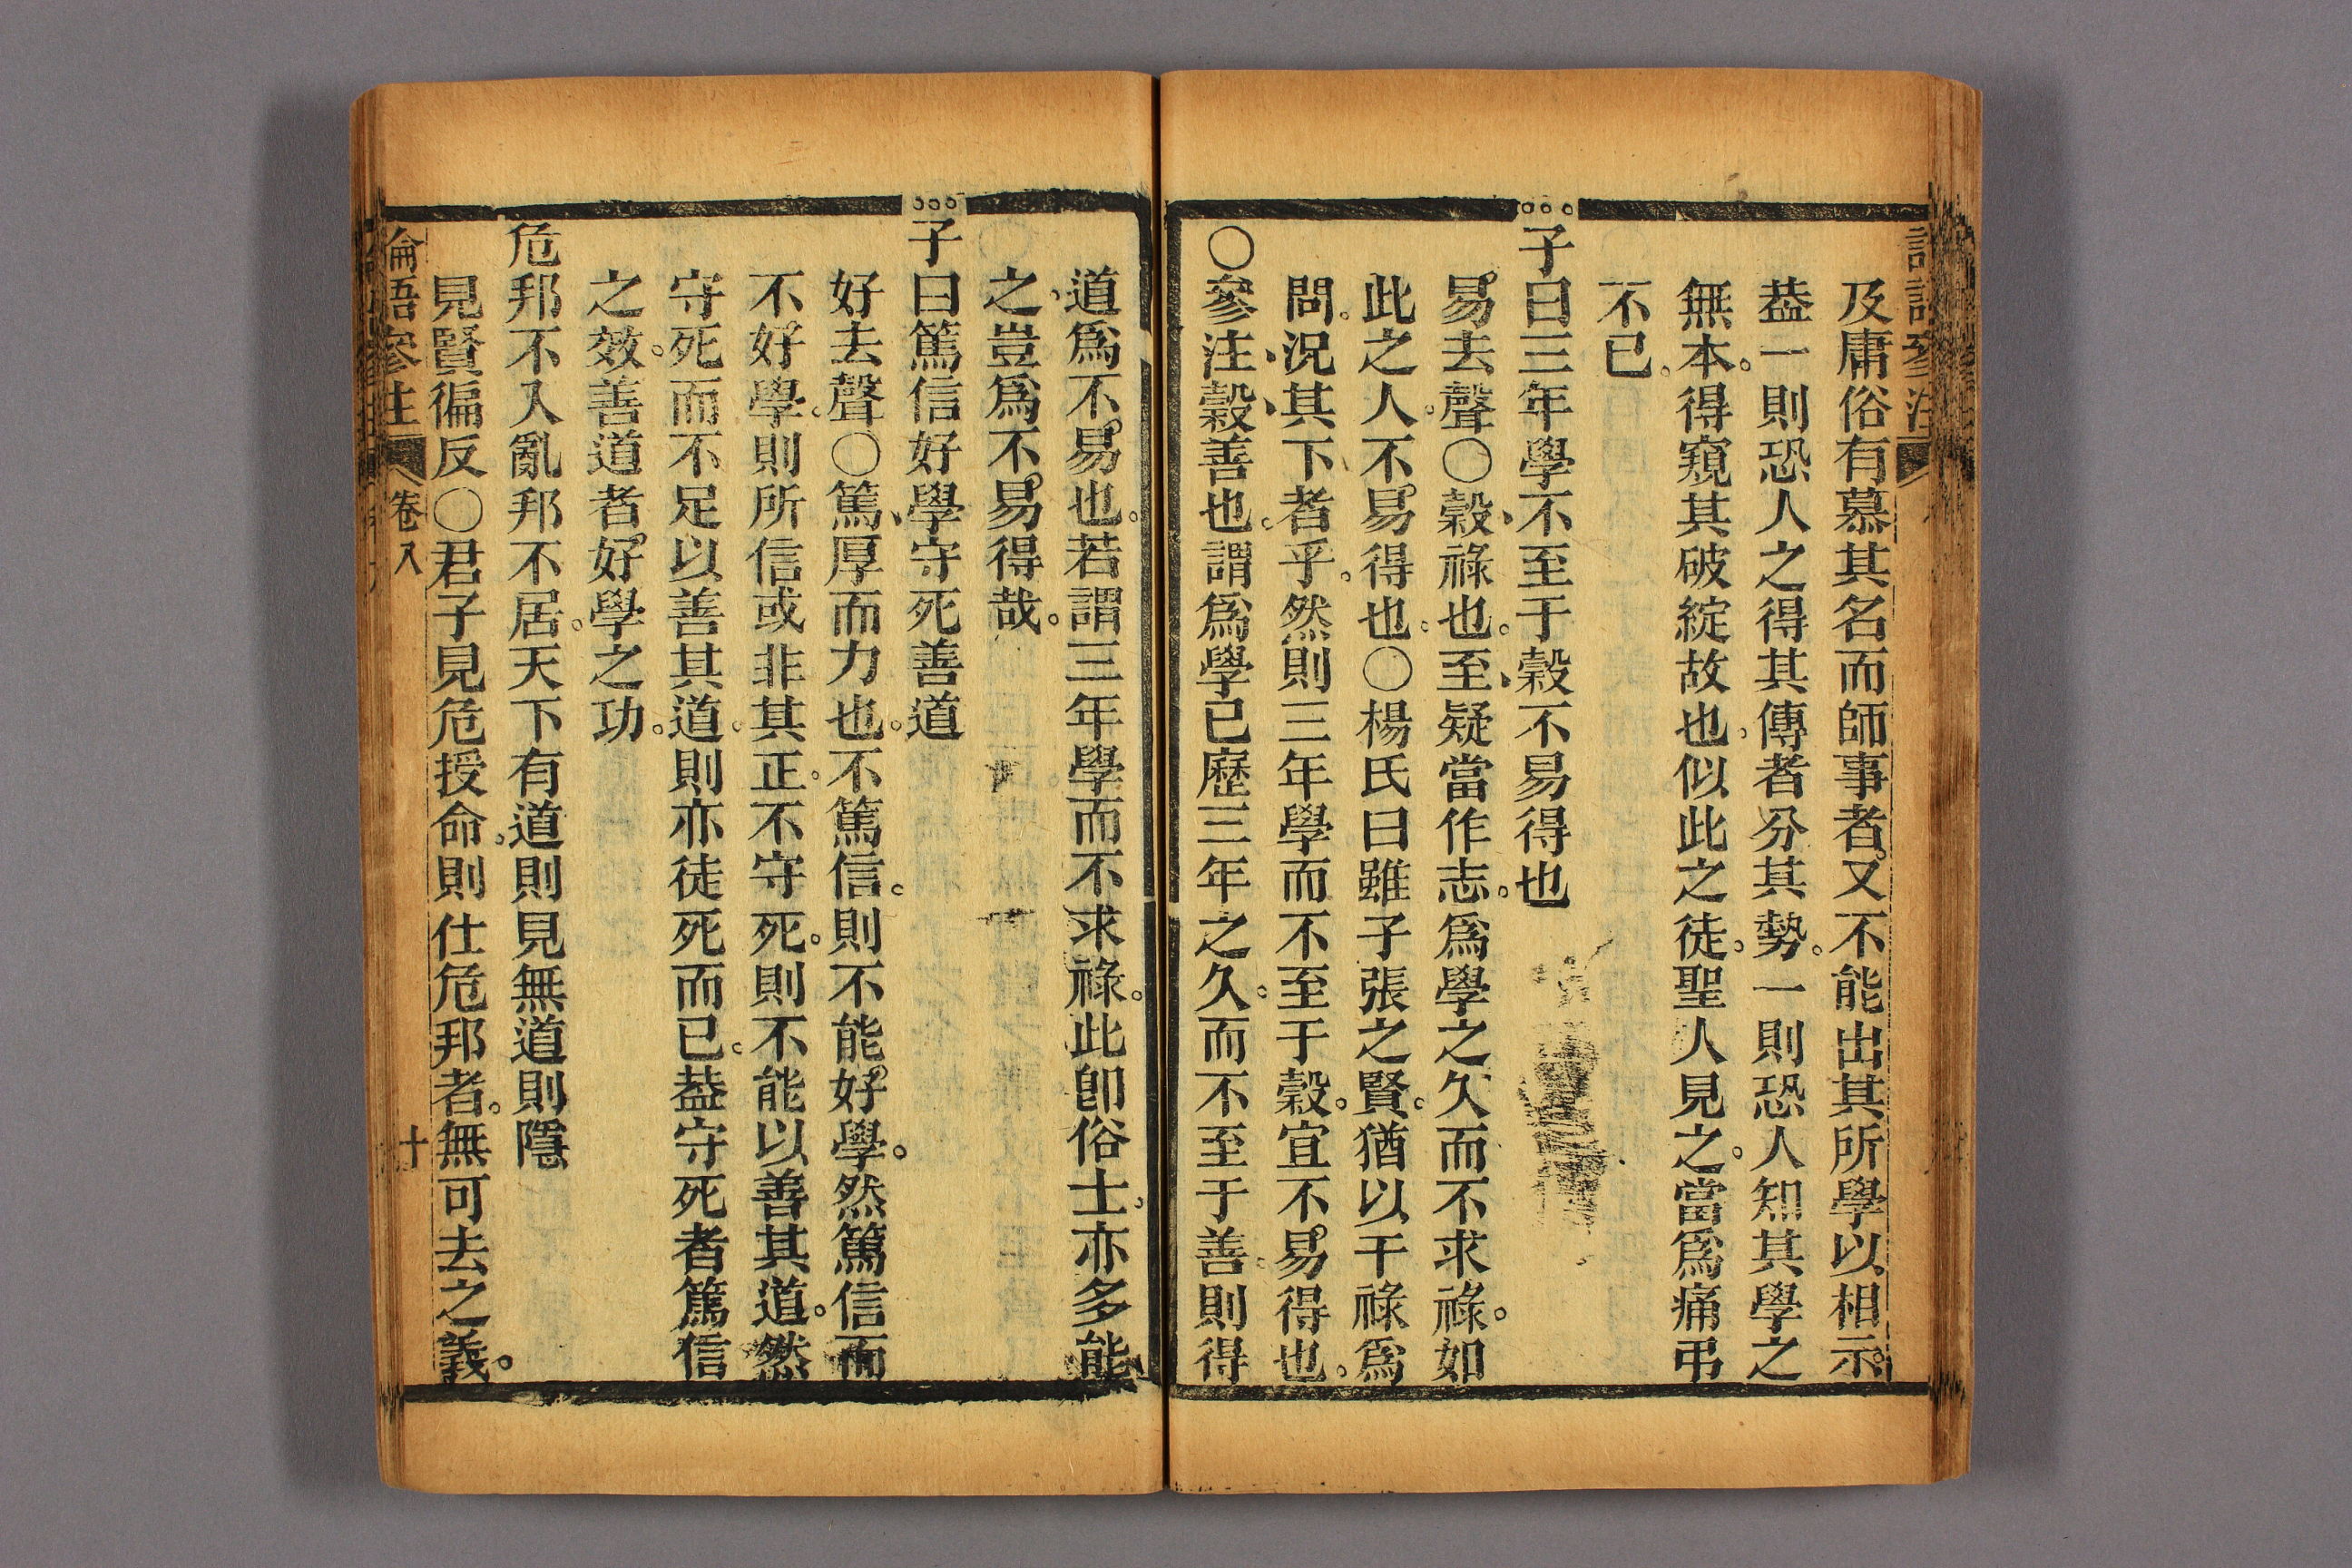 及庸俗有慕其名而師事者。又不能出其所學以相示。
葢一則恐人之得其傳者分其勢。一則恐人知其學之
無本。得窺其破綻故也。似此之徒。聖人見之。當爲痛弔
不已。
子曰三年學不至于穀不易得也
易去聲○穀、祿也。至、疑當作志。爲學之久而不求祿。如
此之人。不易得也。○楊氏曰雖子張之賢。猶以干祿爲
問。况其下者乎。然則三年學而不至于穀。宜不易得也。
○參注、穀、善也。謂爲學已歷三年之久。而不至于善。則得
道爲不易也。若謂三年學而不求祿。此卽俗士。亦多能
之、豈爲不易得哉。
子曰篤信好學守死善道
好去聲○篤、厚而力也。不篤信。則不能好學。然篤信而
不好學。則所信或非其正。不守死。則不能以善其道。然
守死而不足以善其道。則亦徒死而已。葢守死者篤信
之效。善道者好學之功。
危邦不入亂邦不居。天下有道則見無道則隱
見賢徧反○君子見危授命。則仕危邦者。無可去之義。
論語參注 卷八 十